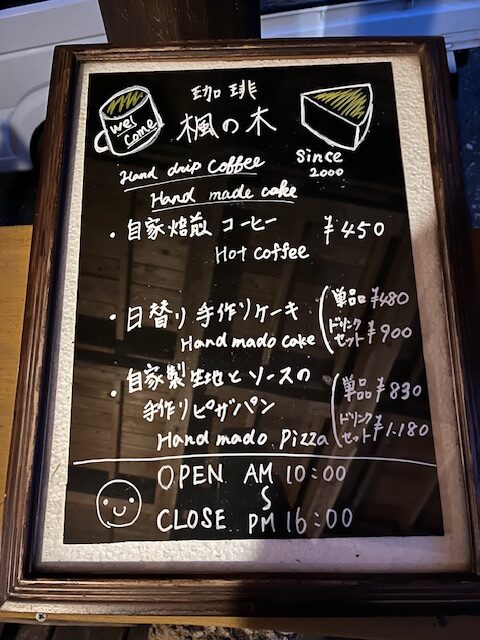 wel
come
珈琲
楓の木
Since
2000
Hand drip Coffee
Hand made cake
・自家焙煎コーヒー ¥450
Hot coffee
・日替り手作りケーキ 単品¥480
Hand mado cake ドリンクセット¥900
・自家製生地とソースの
手作りピザパン 単品¥830
Hand mado Pizza ドリンクセット¥1.180
OPEN AM 10:00
S
CLOSE PM 16:00